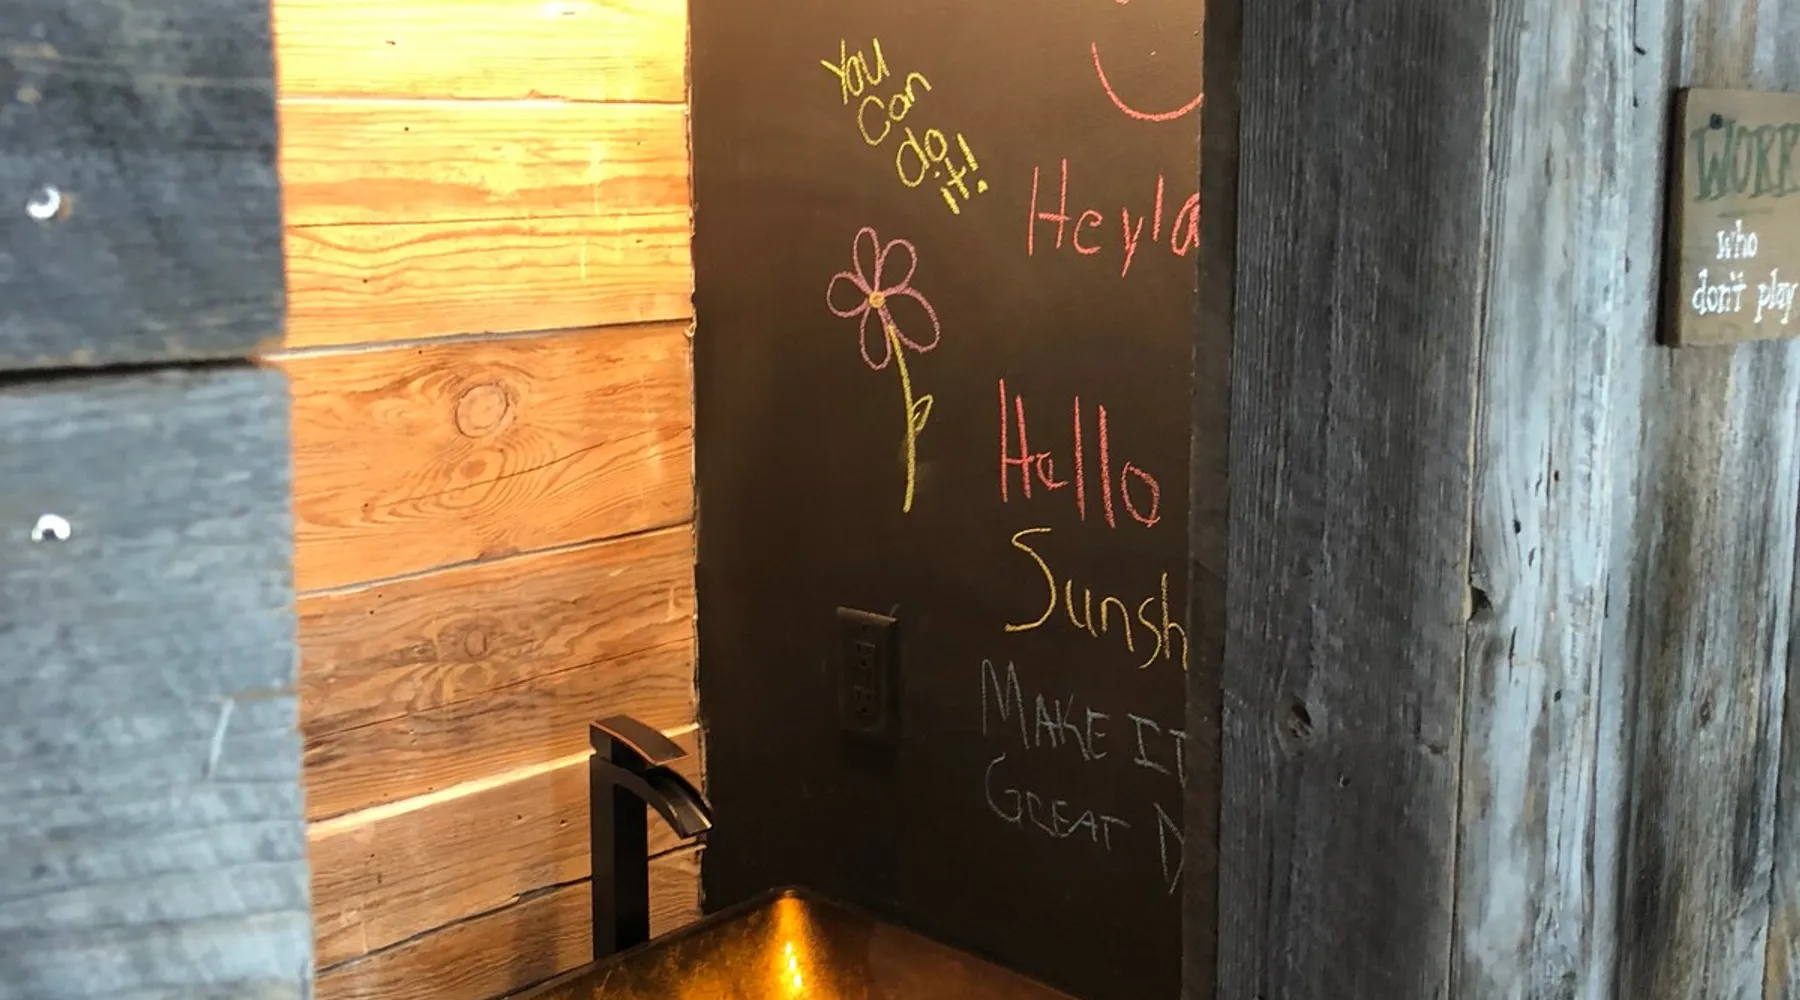 You
Can
do
it!
Heyla
Hello
Sunsh
MAKE IT
GREAT D
WORK
who
don't play